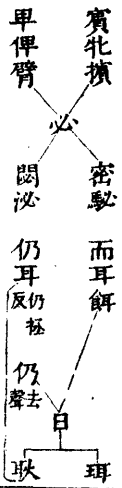 賓牝擯
卑俾臂
必
密駜
閟泌
而耳餌
仍耳仍拯反
仍去聲
日
珥